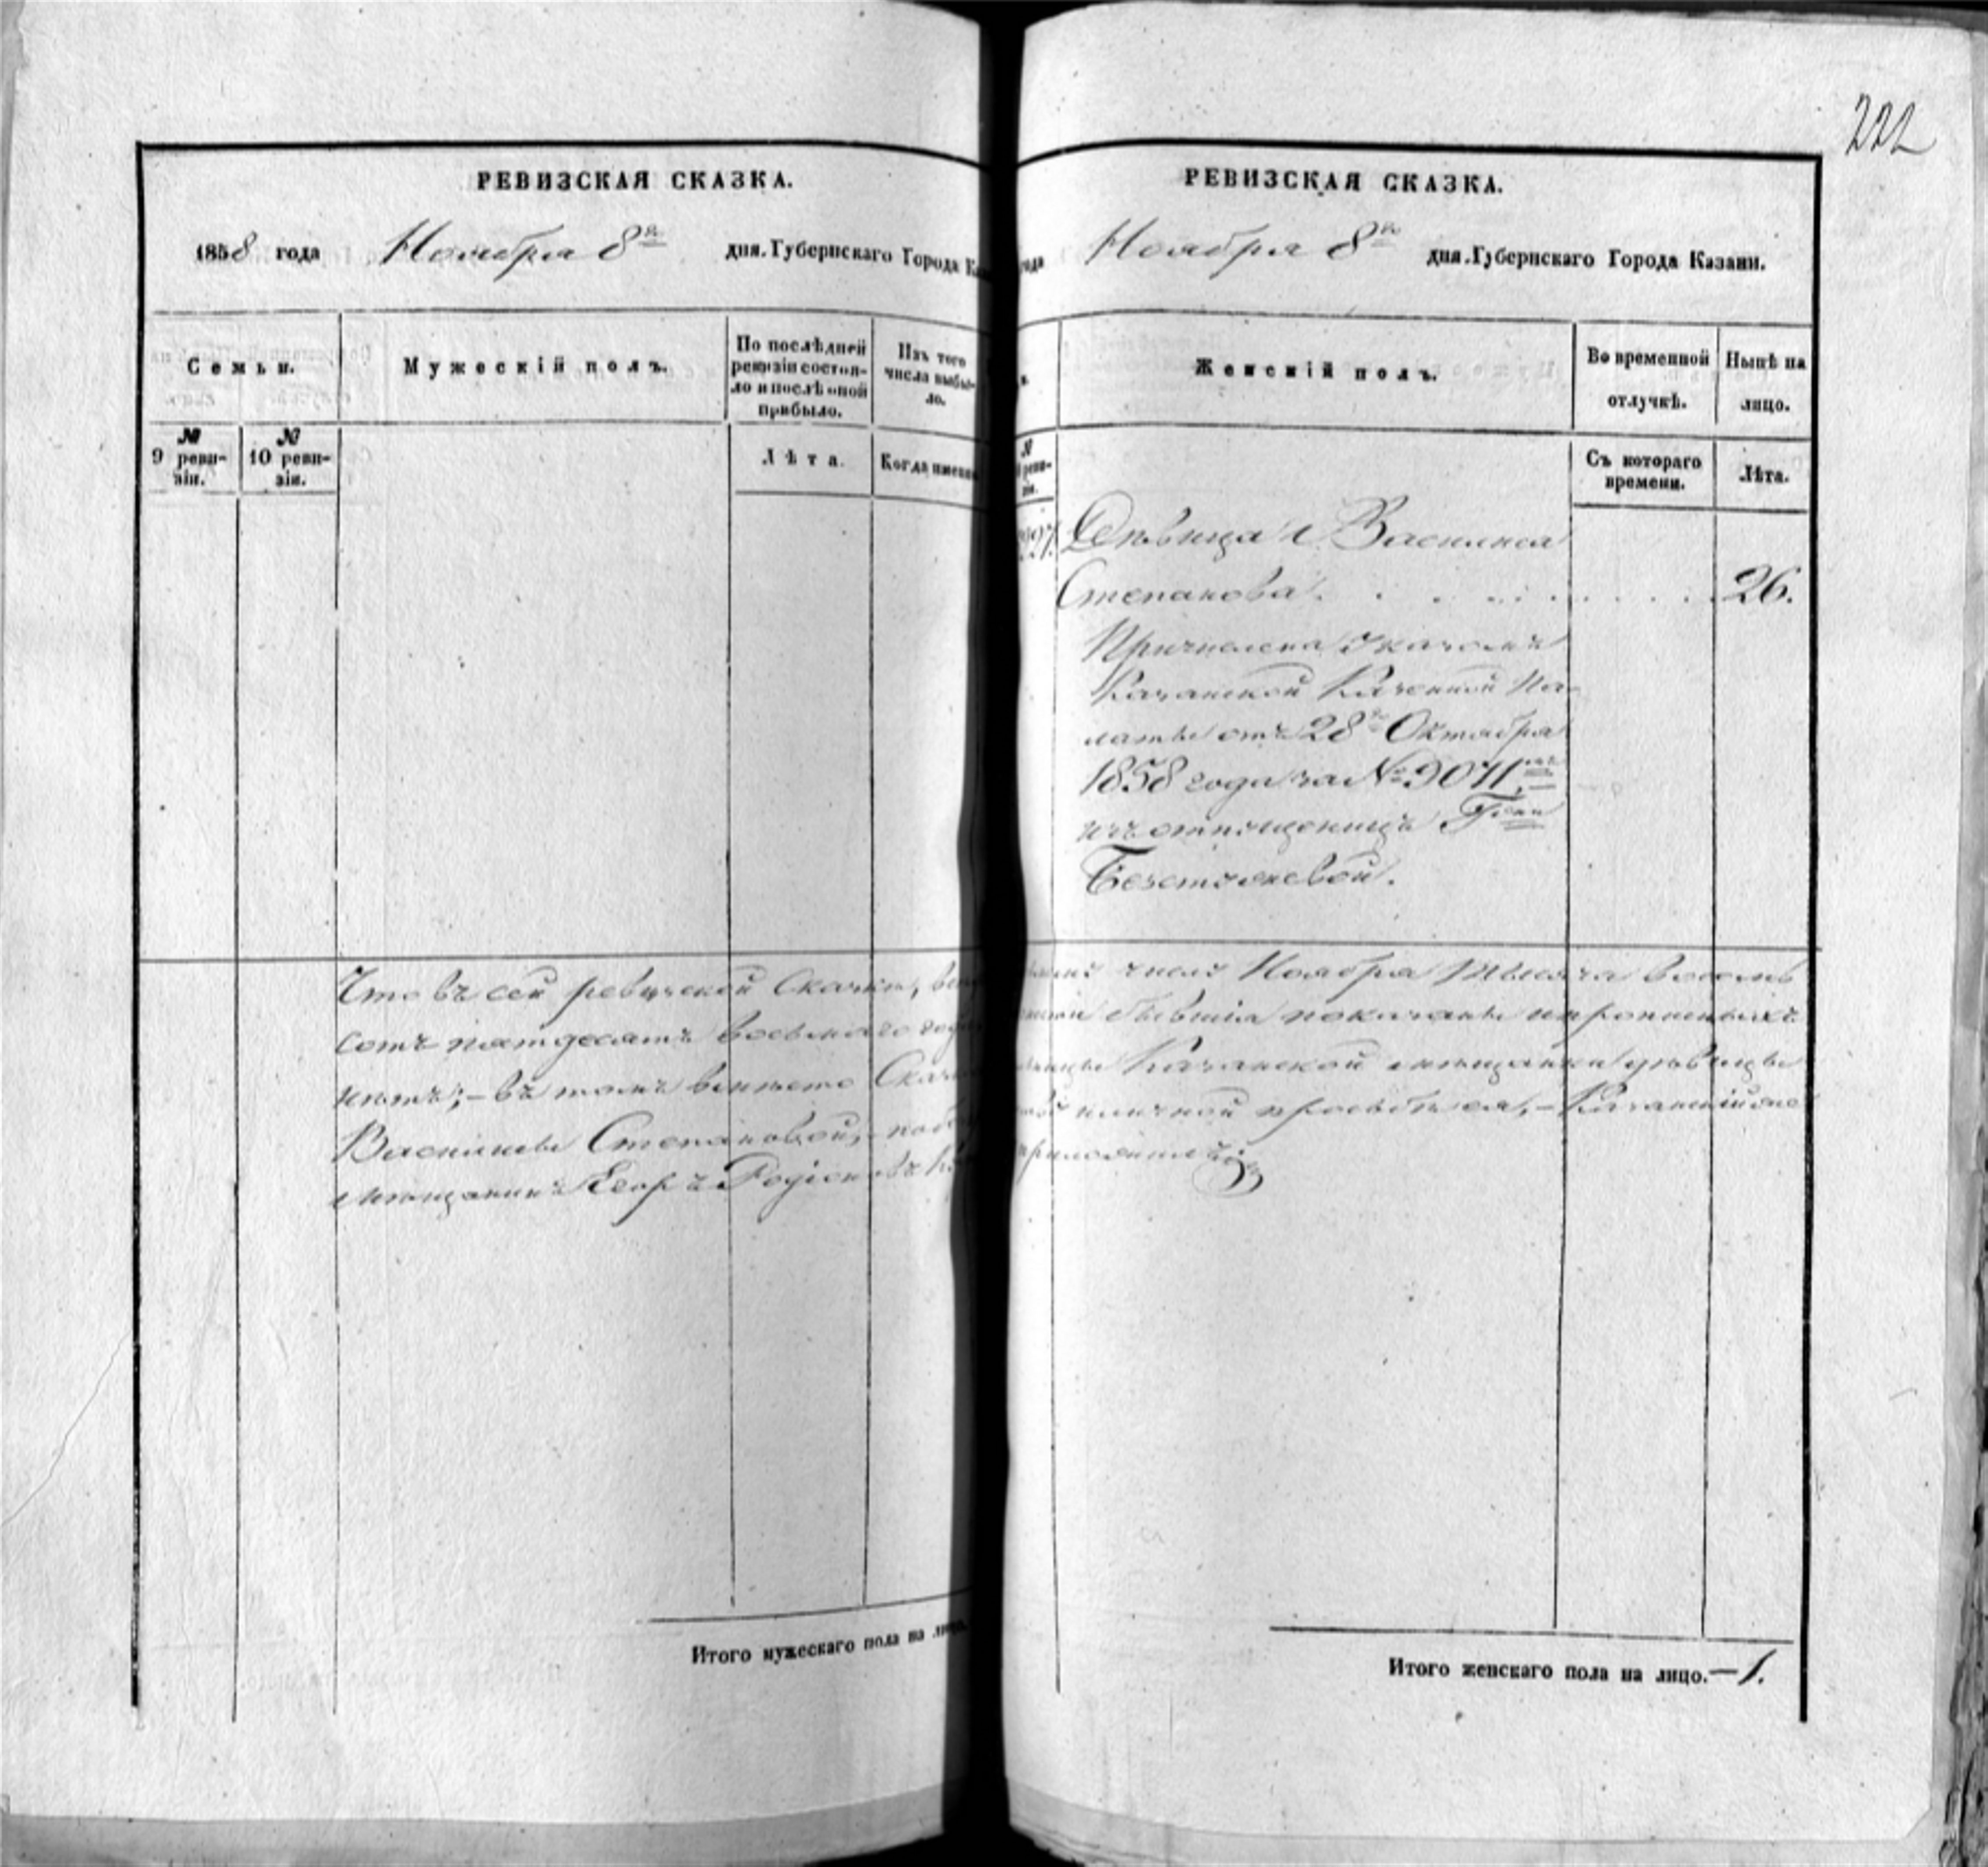 222
РЕВИЗСКАЯ СКАЗКА.
1858 года Ноября 8го дня. Губернскаго Города
Семьи.
Мужескій полъ.
По послѣдней ревизіи состояло и послѣ оной прибыло.
Изъ того числа выбыло.
№ 9 ревизіи.
№ 10 ревизіи.
Лѣта.
Когда именно
Что въ сей ревизской Сказки,
сотъ пятдесятъ восьмаго года
нѣтъ; – въ томъ вмѣсто
Василисы Степановой,
мѣщанинъ Егоръ Родіоновъ
Итого мужескаго пола на лицо.
РЕВИЗСКАЯ СКАЗКА.
года Ноября 8го дня. Губернскаго Города Казани.
Женскій полъ.
Во временной отлучкѣ.
Нынѣ на лицо.
Съ котораго времени.
Лѣта.
Дѣвица Василиса
Степанова. 26.
Причислена Указомъ
Казанской Казенной Па-
латы отъ 28го Октября
1858 года за № 9071,мъ
изъ отпущеницъ Гжи
число Ноября тысяча восемь
бывшія показаны и пропущенныхъ
Казанской мѣщанки дѣвицы
и личной прозьбѣ ея, – Казанскій
приложилъ.
Итого женскаго пола на лицо. – 1.